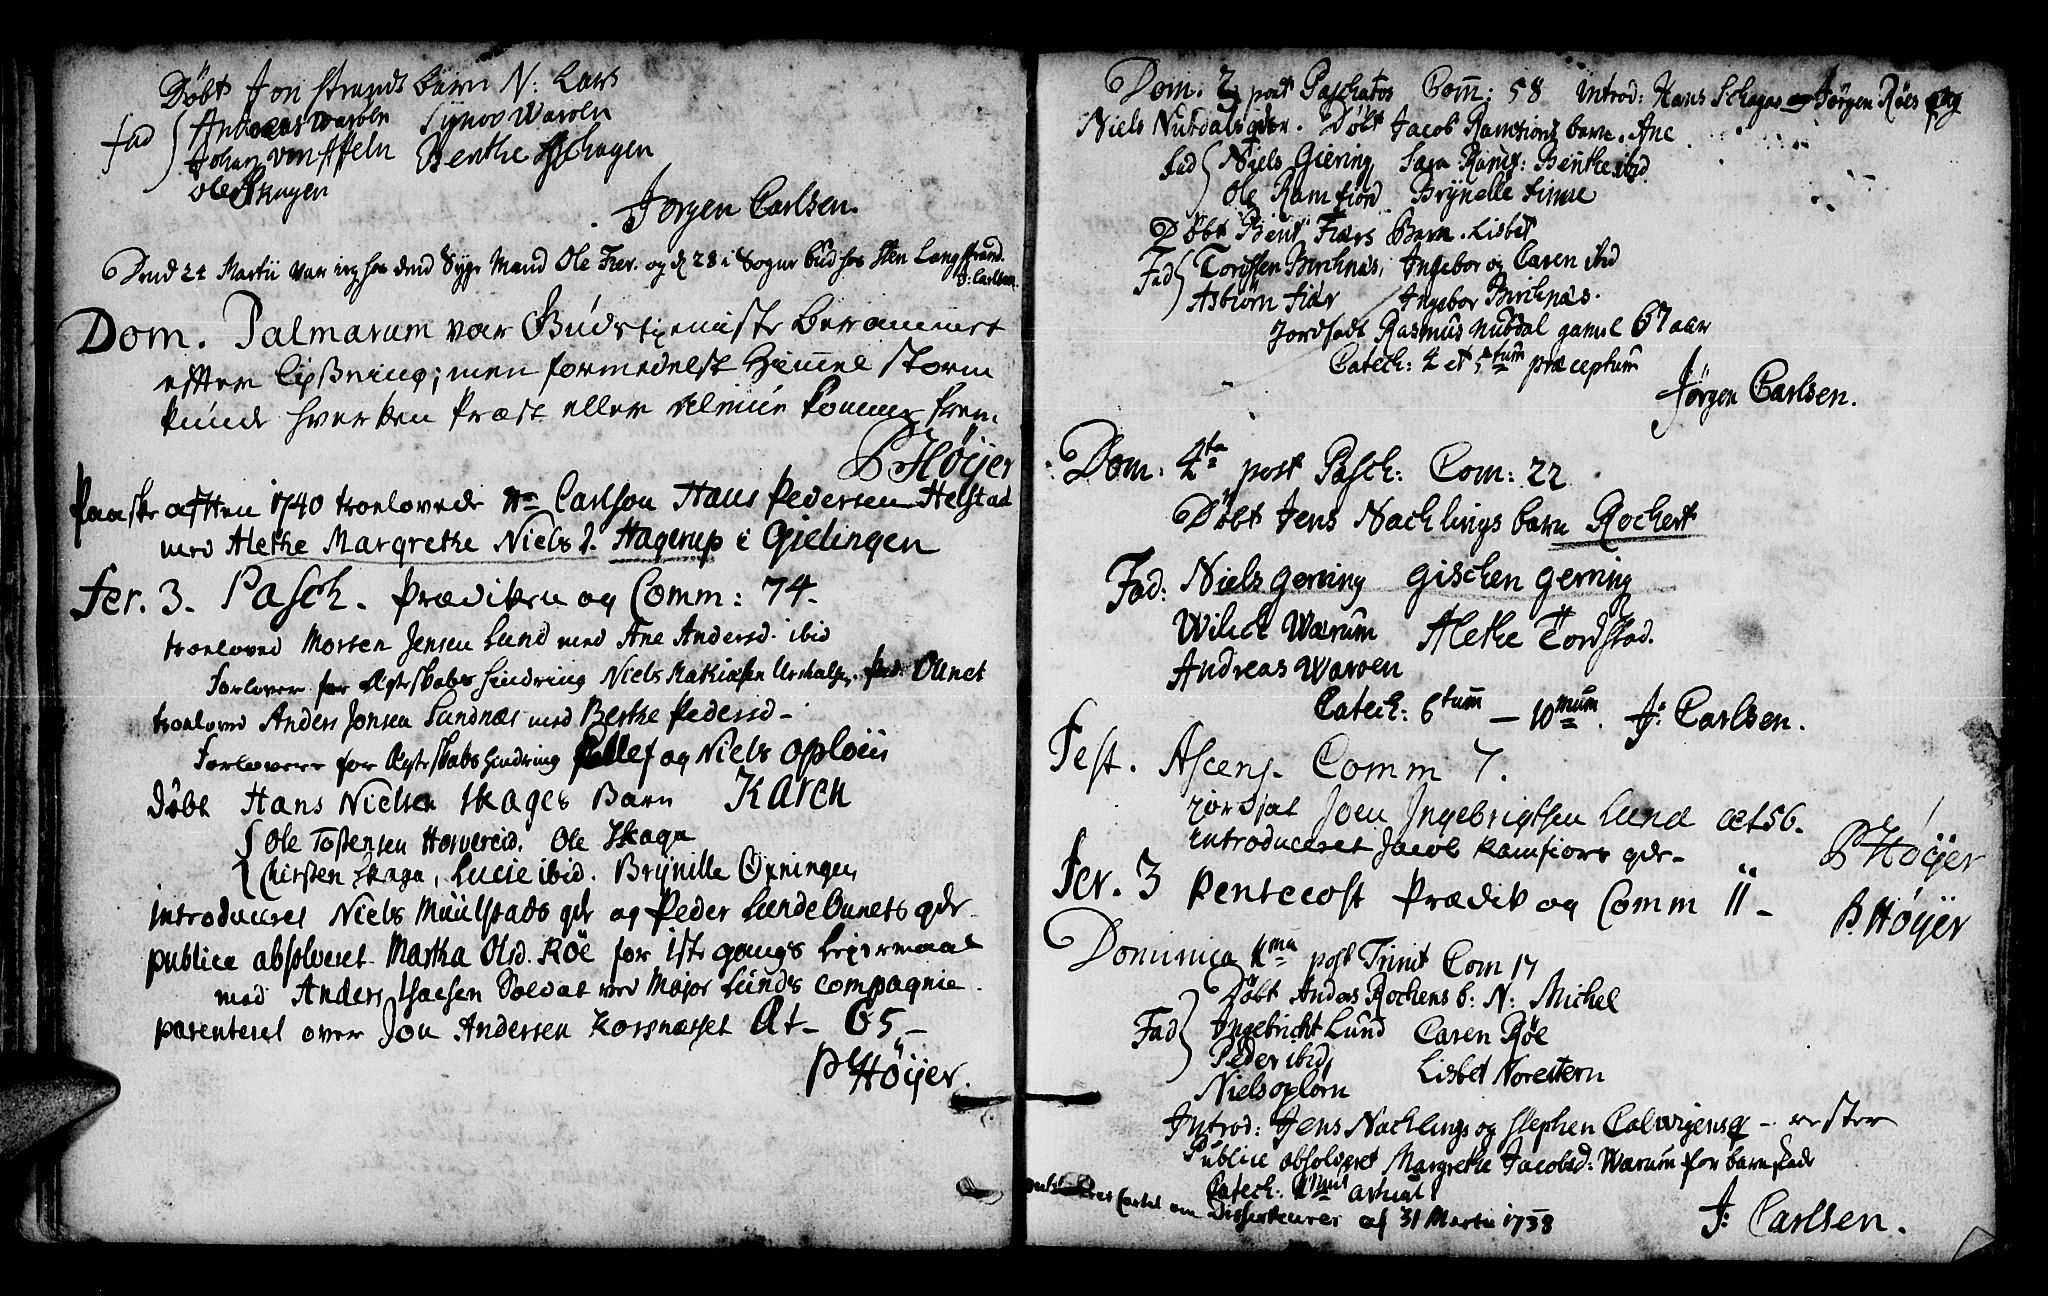 Döbt Jon Strands barn N: Lars
Fad { Andreas Waroen Synov Waroen
Johan von Apeln Benthe Schagen
Ole Skagen
Jörgen Carlsen.
Dend 22 Martii var jeg hos dend Syge Mand Ole Fier. og d 28 i Sogne bud hos Sten Langstrand.
J: Carlsen.
Dom. Palmarum var Gudstieniste berammet
efter Lysning; men formedelst Himmel storm
kunde hverken Præst eller Almue komme frem
P Höyer
Paaske aften 1740 troelovede Hr Carlson Hans Pedersen Helstad
med Alethe Margrethe Niels D. Hagerup i Gielingen
Fer. 3. Pasch. Prædiken og Comm: 74.
troeloved Morten Jensen Lund med Ane Andersd. ibid
Forlover for Ægteskabs hindring Niels Mathiasen ped: Ounet
troelovd Anders Jonsen Lundnæs med Berthe Pedersd –
Forlovere for Ægteskabs hindring Ellef og Niels Oploeii
Döbt Hans Nielsen Skages Barn Karen
{ Ole Tostensen Horvereid. Ole Skage
Chirsten Skage, Lucie ibid. Brynille Öxningen
introduceret Niels Muulstads qdr og Peder Lunde Ounets qdr.
publice absolveret Martha Olsd. Röe for 1ste gangs Leyermaal
med Anders Isacsen Soldat ved Major Lunds compagnie.
parenteret over Jon Andersen Korsnæsset Æt– 65 –
P Höyer.
Dom. 3 post Paschatos Com: 58 Introd: Hans Schages og Jörgen Röes og
Niels Nubdals qdr. Döbt Jacob Ramfiords barn. Ane
Fad { Niels Giering Sara Ramf: Benthe ibid.
Ole Ramfiord Brynelle Finne
Döbt Bent Fiærs Barn. Lisbet
Fad { Torsten Birchnæs, Ingebor og Caren ibid
Asbiörn Fiær Ingebor Birchnæs.
Jordfæst Rasmus Nubdal gamel 67 aar
Catech: 4 et 5tum præceptum
Jörgen Carlsen.
Dom: 4ta post Pasch: Com: 22
Döbt Jens Nachlings barn Rochert
Fad: Niels Gerving Gischen Gerving
Wilich Warum Alethe Tordstad.
Andreas Waroen
Catech: 6tum – 10mum. J: Carlsen.
Fest. Ascens. Comm 7.
jordsat Joen Ingebrigtsen Lund æt 56.
introduceret Jacob Ramfiors qdr –
P Höyer
Fer. 3 Pentecost Prædik og Comm 11 –
P. Höyer
Dominica 1ma post Trinit Com 17
Döbt Anders Rochens b: N: Michel
Fad } Ingebricht Lund Caren Röe
Peder ibid, Lisbet Norestern
Niels Oplorn
Introd: Jens Nachlings og Stephen Calvigens q – vester
Publice absolveret Margrethe Jacobsd: Warum for barnefade
Catech: 1mus articul
Cartel om Disserteurer af 31 Martii 1738
J: Carlsen.